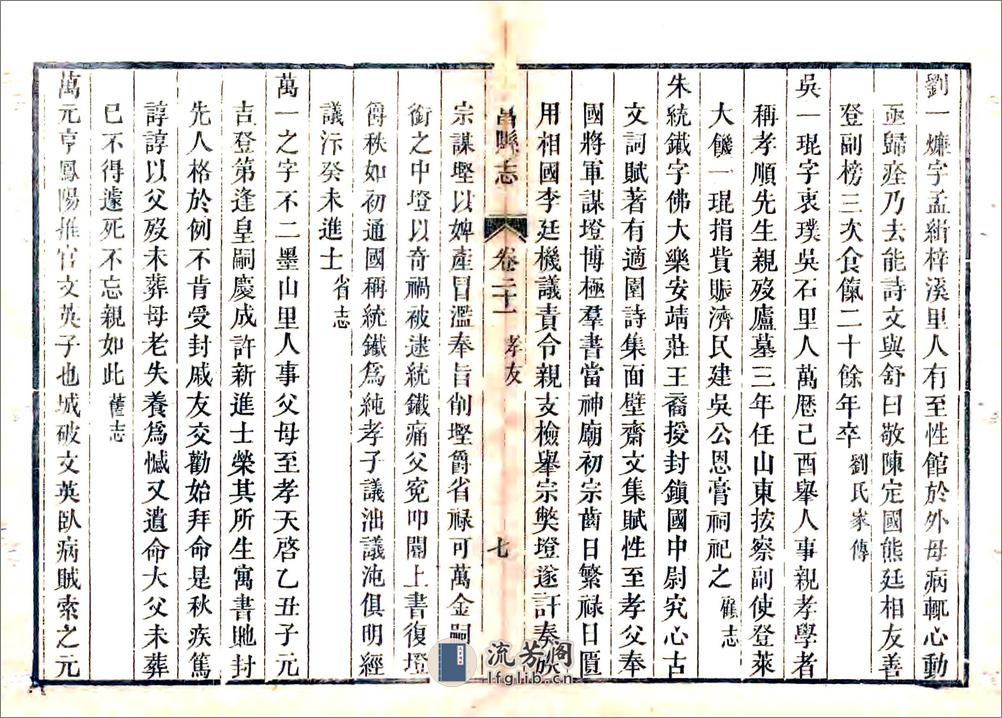 劉一爌字孟緝梓溪里人有至性館於外母病輒心動
亟歸痊乃去能詩文與舒曰敬陳定國熊廷相友善
登副榜三次食餼二十餘年卒劉氏家傳
吳一琨字衷璞吳石里人萬厯己酉舉人事親孝學者
稱孝順先生親歿廬墓三年任山東按察副使登萊
大饑一琨捐貲賑濟民建吳公恩膏祠祀之舊志
朱統鐵字佛大樂安靖莊王裔授封鎮國中尉究心古
文詞賦著有適園詩集面壁齋文集賦性至孝父奉
國將軍謀㙐博極羣書當神廟初宗齒日繁祿日匱
用相國李廷機議責令親支檢舉宗獘㙐遂訐奏嫡
昌縣志 卷二十一 孝友 七
宗謀壂以婢產冒濫奉旨削壂爵省祿可萬金嗣
銜之中㙐以奇禍被逮統鐵痛父寃叩閽上書復㙐
爵秩如初通國稱統鐵爲純孝子議泏議沌俱明經
議汴癸未進士省志
萬一之字不二墨山里人事父母至孝天啓乙丑子元
吉登第逢皇嗣慶成許新進士榮其所生寓書貤封
先人格於例不肯受封戚友交勸始拜命是秋疾篤
諄諄以父歿未葬母老失養爲憾又遺命大父未葬
已不得遽死不忘親如此舊志
萬元亨鳳陽推官文英子也城破文英臥病賊索之元
流芳阁
lfglib.cn